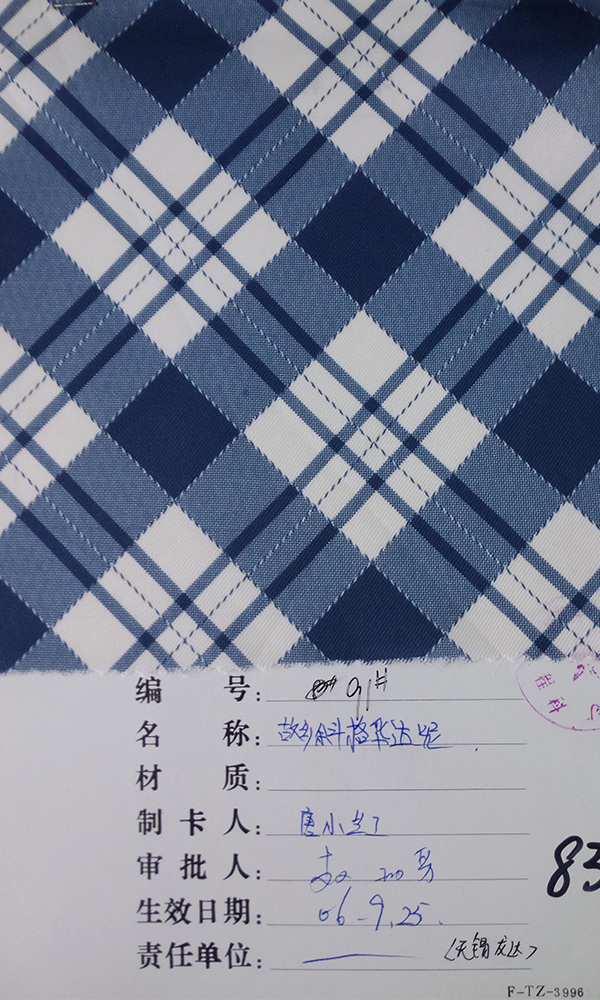 编 号： 91#
名 称： 故乡斜格华达呢
材 质：
制卡人： 唐小兰
审批人：
生效日期： 06-9.25.
责任单位： (无锡友达)
83
F-TZ-3996